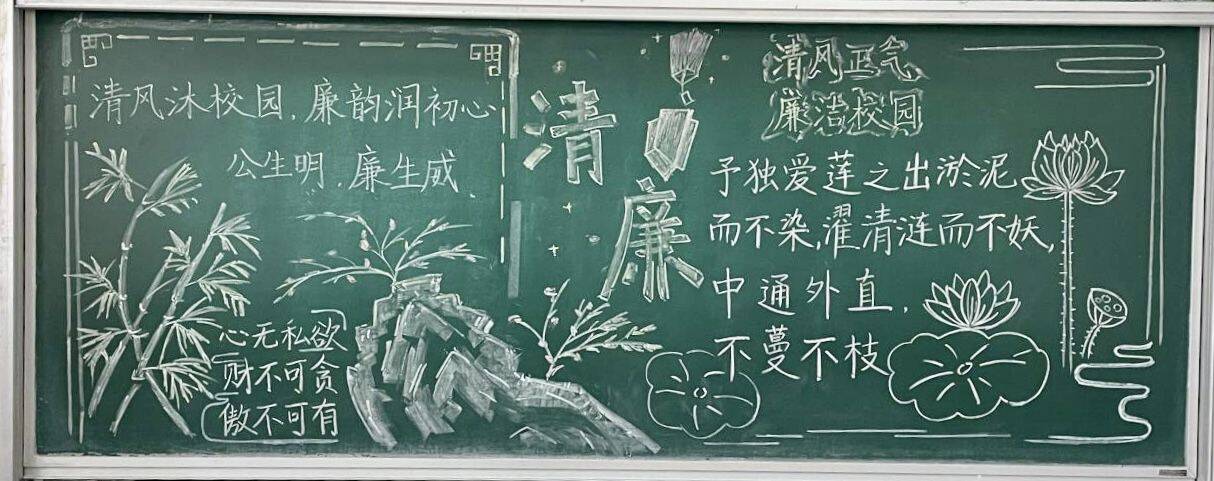 清风沐校园,廉韵润初心
公生明,廉生威
心无私欲
财不可贪
傲不可有
清
廉
清风正气
廉洁校园
予独爱莲之出淤泥
而不染,濯清涟而不妖,
中通外直,
不蔓不枝